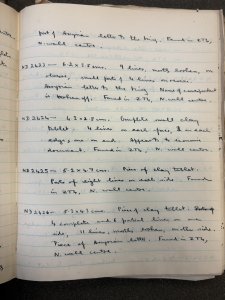 part of Assyrian letter to the king. Found in ZT4,
N. wall centre.
ND 2423 — 6.2 x 2.8 cms. 9 lines, mostly broken, on
obverse, small part of 4 lines on reverse.
Assyrian letter to the king. Name of correspondent
is broken off. Found in ZT4, N. wall centre.
ND 2424 — 4. x 2.5 cms. Complete small clay
tablet. 4 lines on each face, on each
edge, one on end. Appears to
document. Found in ZT4, N. wall centre.
ND 2425 — 5.2 x 4.7 cms. Piece of clay tablet.
Parts of eight lines on each side. Found
in ZT4, N. wall centre.
ND 2426 — 5.2 x 4 cms. Piece of clay tablet.
4 complete and 6 partial lines on one
side, 11 lines, mostly broken, on other side.
Piece of Assyrian letter. Found in ZT4,
N. wall centre.